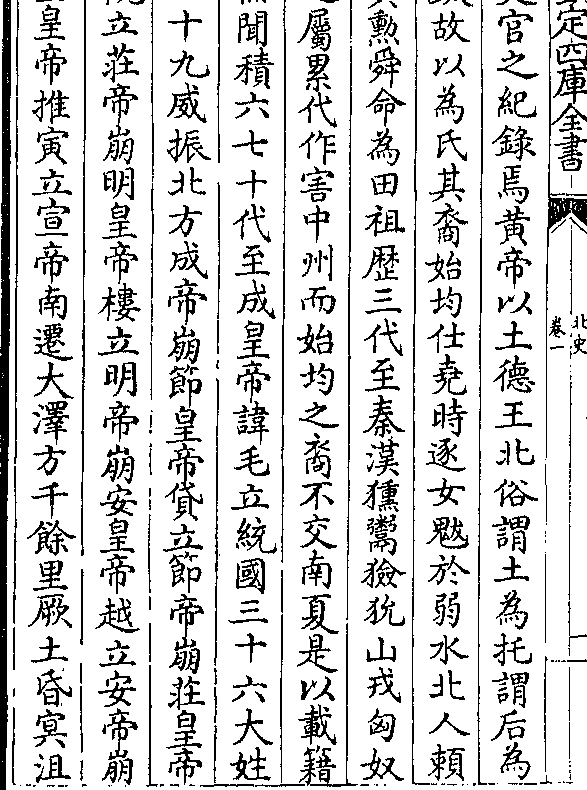 定四庫全書
北史
卷一
官之紀錄焉黃帝以土德王北俗謂土為托謂后為
故以為氏其裔始均仕堯時逐女魃於弱水北人賴
勲舜命為田祖歴三代至秦漢獯鬻獫狁山戎匈奴
屬累代作害中州而始均之裔不交南夏是以載籍
聞積六七十代至成皇帝諱毛立統國三十六大姓
十九威振北方成帝崩節皇帝貸立節帝崩莊皇帝
立莊帝崩明皇帝樓立明帝崩安皇帝越立安帝崩
皇帝推寅立宣帝南遷大澤方千餘里厥土昏冥沮